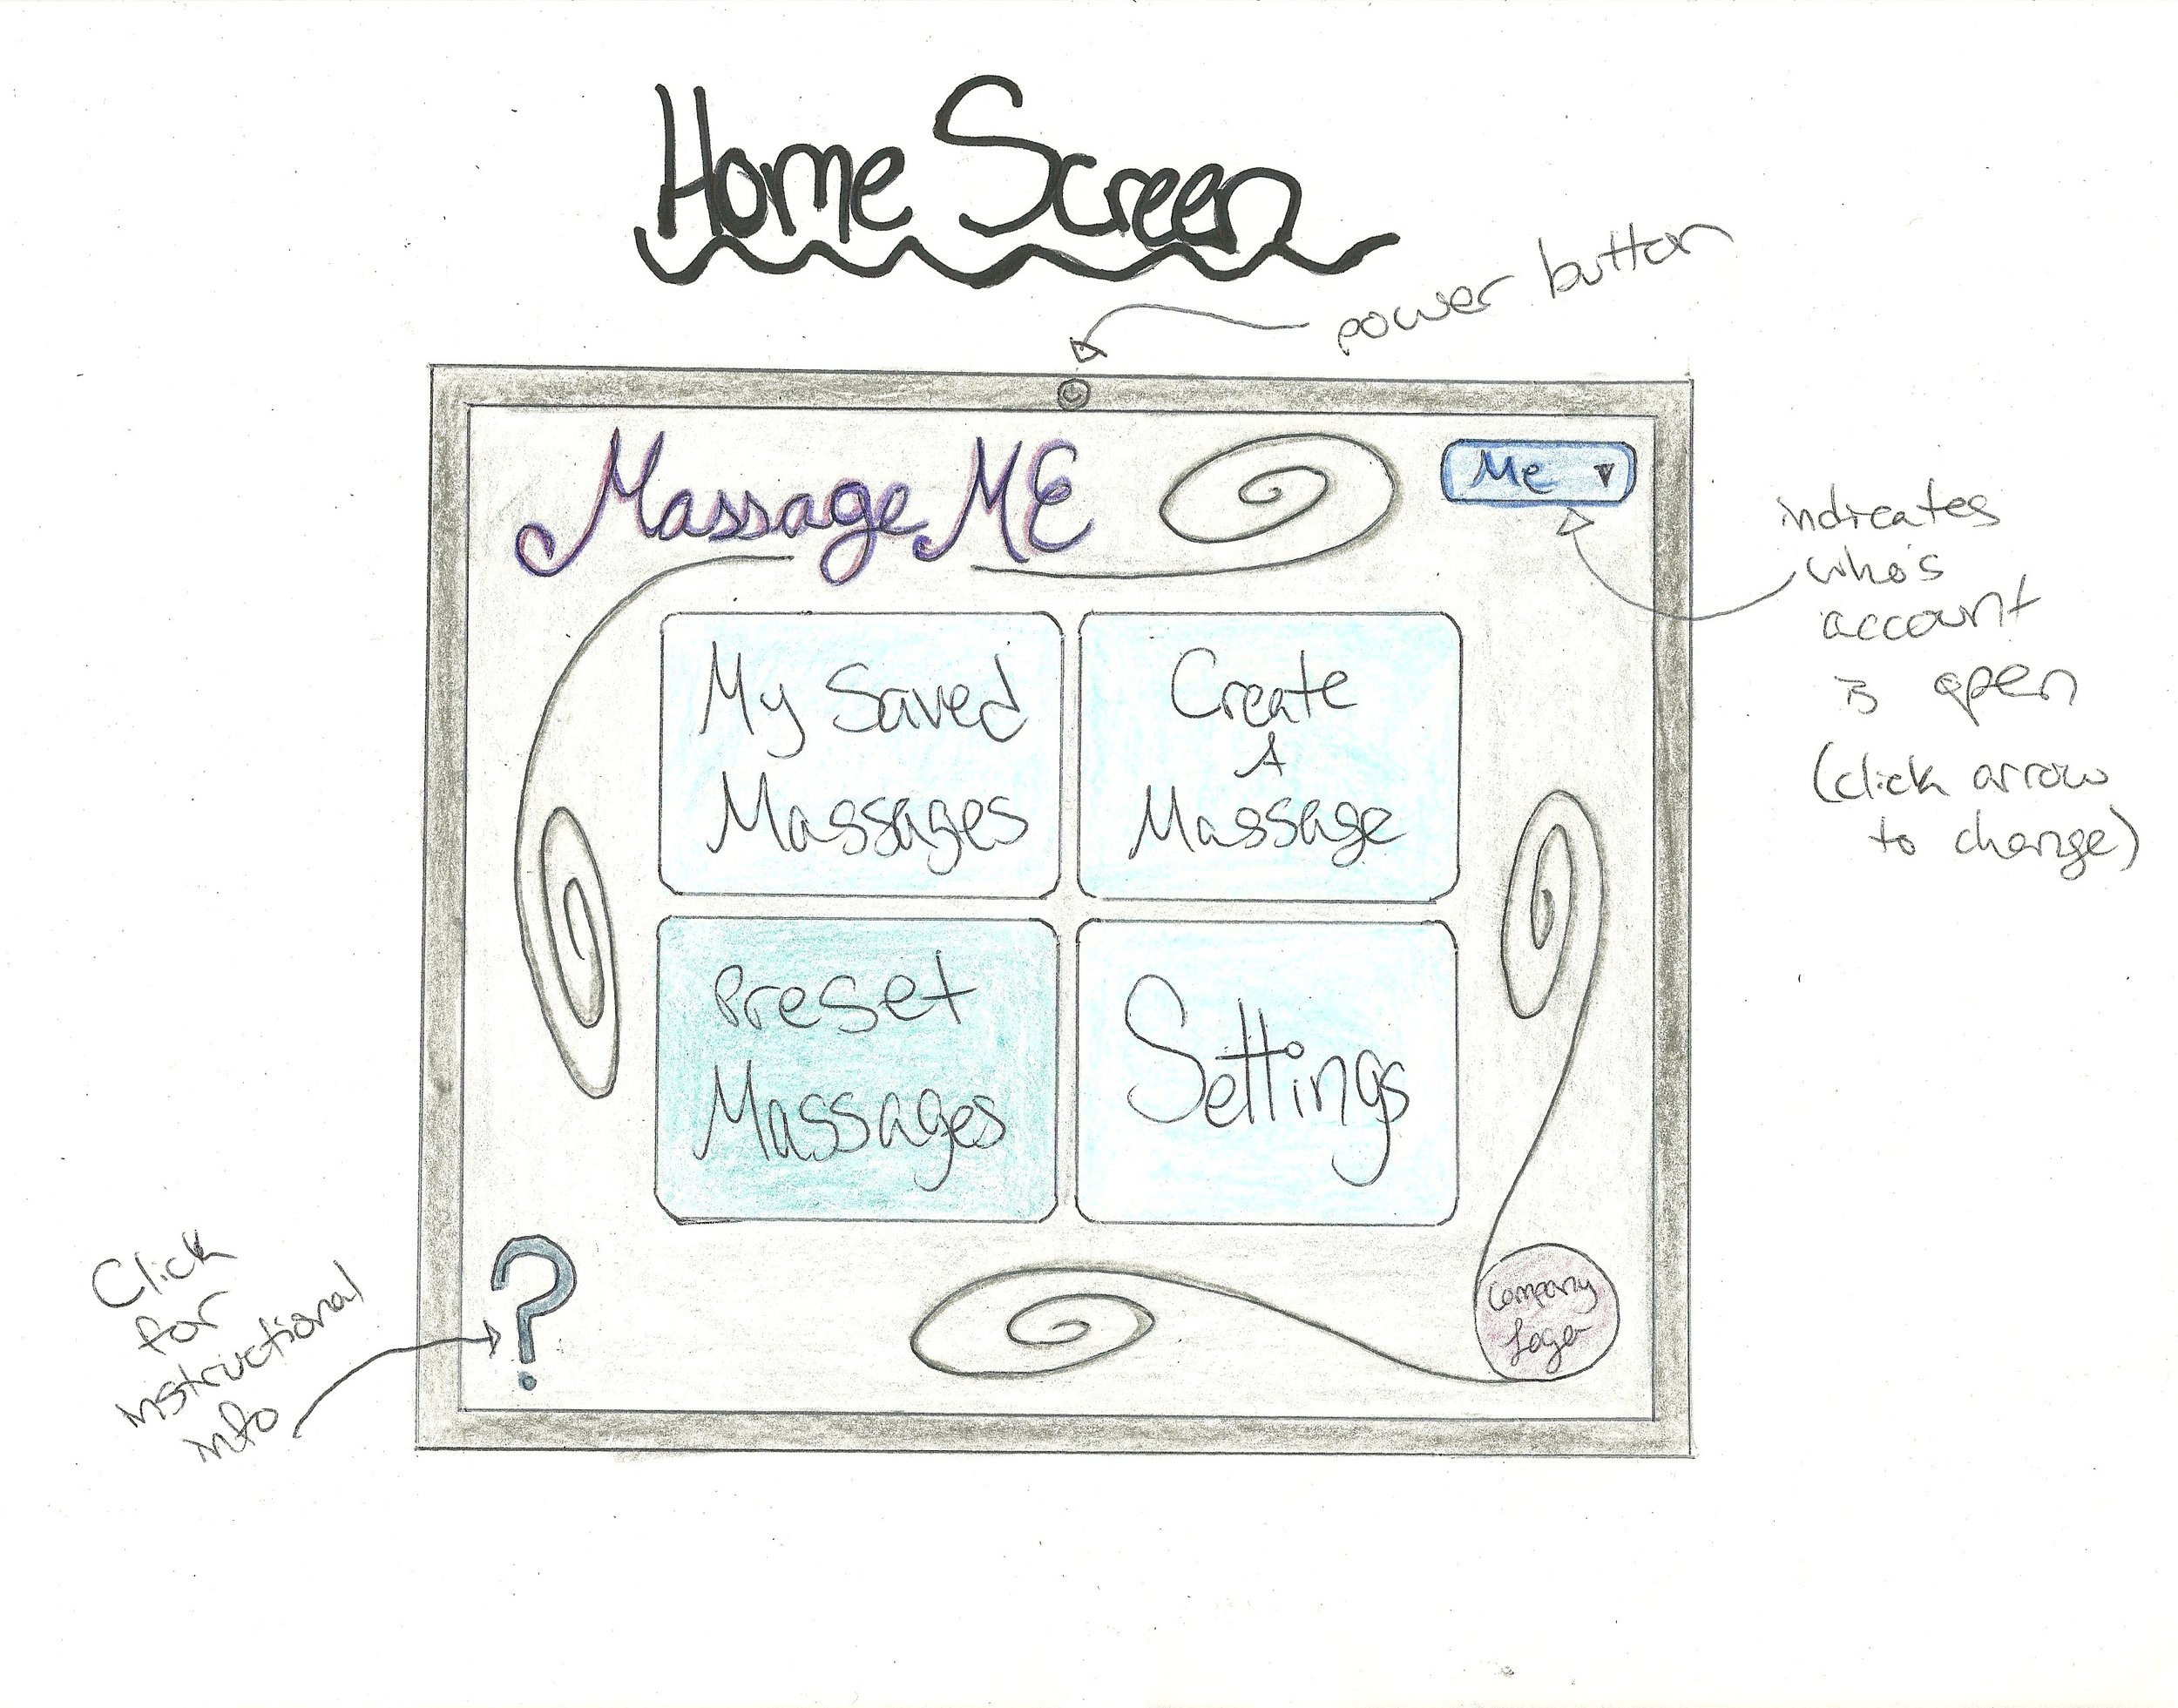 Home Screen
power button
Massage ME
Me
indicates
who's
account
is open
(click arrow
to change)
My Saved
Massages
Create
A
Massage
Preset
Massages
Settings
?
Click
for
instructional
info
Company
Logo